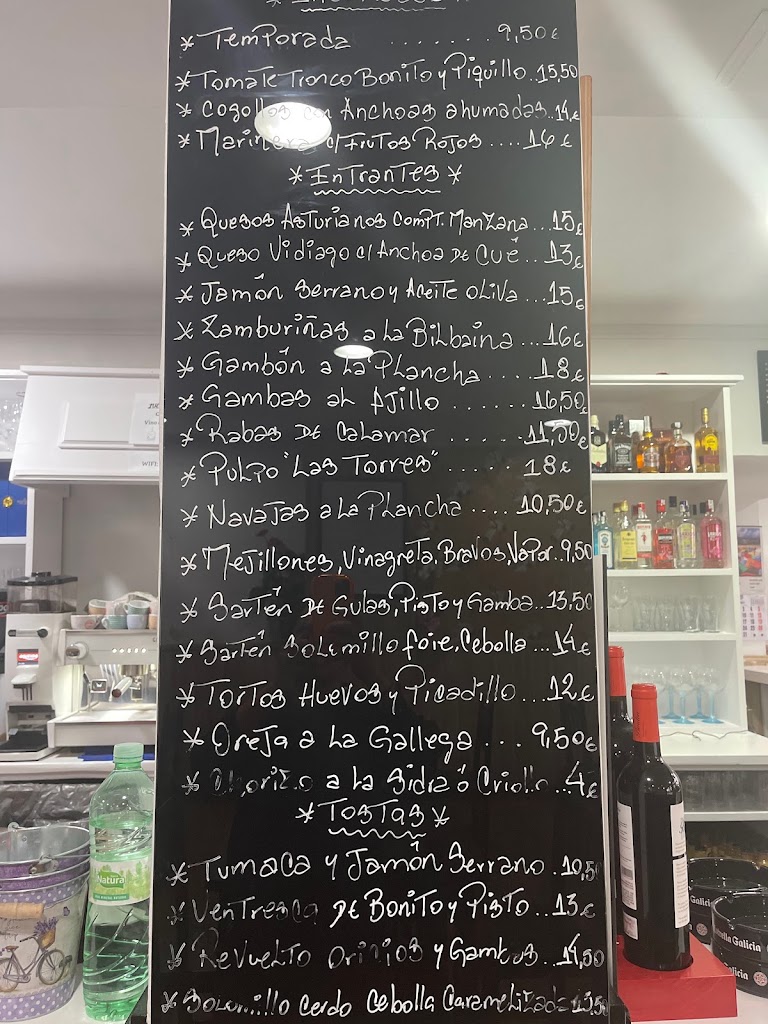 * Temporada ....... 9,50€
* Tomate Tronco Bonito y Piquillo..15,50
* Cogollos con Anchoas ahumadas..14€
* Marinera c/Frutos Rojos ....16€
* Entrantes *
* Quesos Asturianos Compt. Manzana...15€
* Queso Vidiago c/ Anchoa de Cué ..13€
* Jamón Serrano y Aceite Oliva ...15€
* Zamburiñas a la Bilbaina ...16€
* Gambón a la Plancha ....18€
* Gambas al Ajillo ...... 16,50€
* Rabas de Calamar ..... 11,50€
* Pulpo "Las Torres" ..... 18€
* Navajas a la Plancha .... 10,50€
* Mejillones, Vinagreta, Bravos, Vapor..9,50
* Sartén de Gulas, Pisto y Gamba..13,50
* Sartén Solomillo foie, Cebolla ...14€
* Tortos Huevos y Picadillo ...12€
* Oreja a la Gallega ... 9,50€
* Chorizo a la Sidra ó Criollo ..4€
* Tostas *
* Tumaca y Jamón Serrano .10,50
* Ventresca de Bonito y Pisto ..13€
* Revuelto Oricios y Gambas ..14,50
* Solomillo Cerdo Cebolla Caramelizada
WIFI
Natura
Estrella Galicia
Galicia